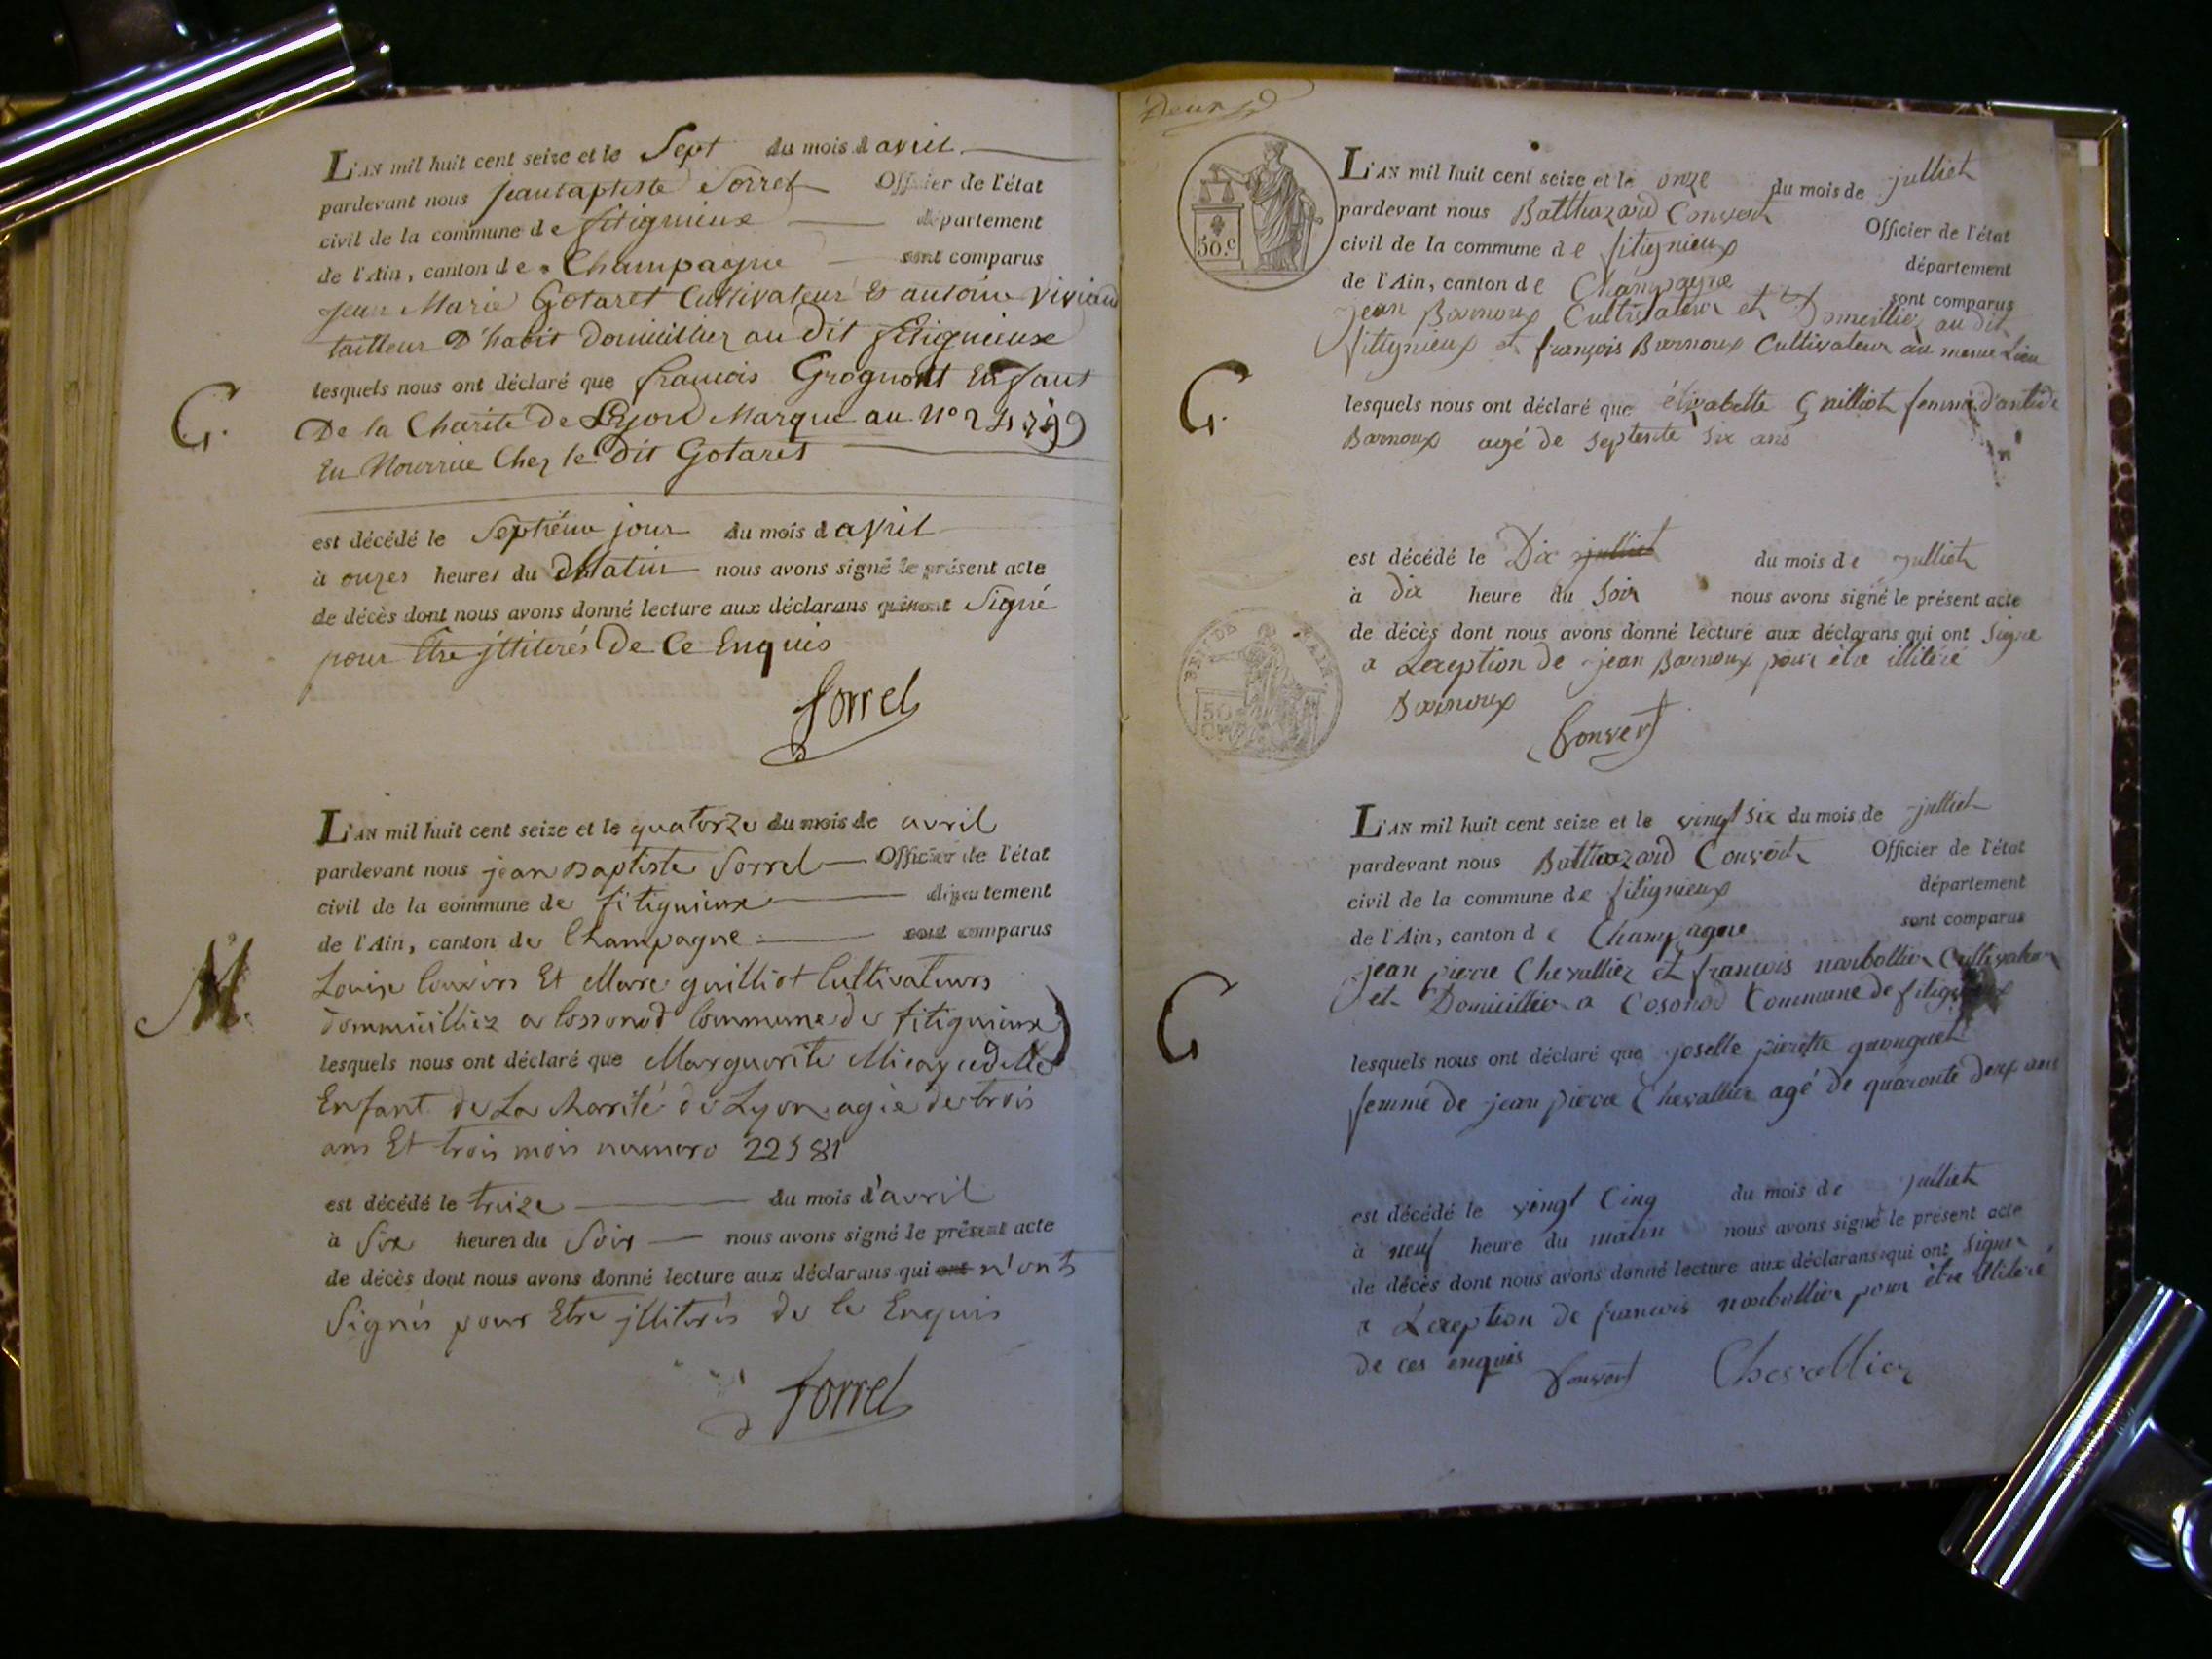 L'AN mil huit cent seize et le Sept du mois d avril
pardevant nous jean baptiste Sorrel Officier de l'état
civil de la commune de fitignieux département
de l'Ain, canton de Champagne sont comparus
Jean Marie Gotaret Cultivateur Et antoine Viviand
tailleur D'habit Domicillier au dit fitignieux
lesquels nous ont déclaré que francois Grognont Enfant
De la Charite de Lyon Marque au N°
En Nourrice Chez le Dit Gotaret
est décédé le Septiéme jour du mois d avril
à onzes heures du Matin nous avons signé le présent acte
de décès dont nous avons donné lecture aux déclarans Signé
pour Etre jlliterés De Ce Enquis
Sorrel
G.
L'AN mil huit cent seize et le quatorze du mois de avril
pardevant nous jean Baptiste Sorrel Officier de l'état
civil de la commune de fitignieux département
de l'Ain, canton de Champagne sont comparus
Louise Et Mare guilliot Cultivateurs
dommicilliez a Cossonod Commune de fitignieux
lesquels nous ont déclaré que Marguerite
Enfant de La Charité de Lyon agée de trois
ans Et trois mois numero 22581
est décédé le treize du mois d'avril
à Six heures du Soir nous avons signé le présent acte
de décès dont nous avons donné lecture aux déclarans qui ont n'ont
Signés pour Etre jlliterés de Ce Enquis
Sorrel
M.
50.c
L'AN mil huit cent seize et le onze du mois de julliet
pardevant nous Balthazard Convert Officier de l'état
civil de la commune de fitignieux département
de l'Ain, canton de Champagne sont comparus
jean Barnoux Cultivateur et Domeillier au dit
fitignieux et françois Barnoux Cultivateur au meme Lieu
lesquels nous ont déclaré que élizabette Guilliot femme d'antide
Barnoux agé de septente six ans
est décédé le Dix julliet du mois de julliet
à dix heure du Soir nous avons signé le présent acte
de décès dont nous avons donné lecture aux déclarans qui ont Signe
a Lexeption de jean Barnoux pour être illiteré
Barnoux
Convert
G.
L'AN mil huit cent seize et le vingt six du mois de julliet
pardevant nous Balthazard Convert Officier de l'état
civil de la commune de fitignieux département
de l'Ain, canton de Champagne sont comparus
jean pierre Chevallier et francois Cultivateur
et Domicillier a Cosonod Commune de fitignieux
lesquels nous ont déclaré que joselle pierrette
femme de jean pierre Chevallier agé de quaronte deux ans
est décédé le vingt Cinq du mois de julliet
à neuf heure du matin nous avons signé le présent acte
de décès dont nous avons donné lecture aux déclarans qui ont Signer
a Lexeption de francois pour être illiteré
de ces enquis Convert Chevallier
C